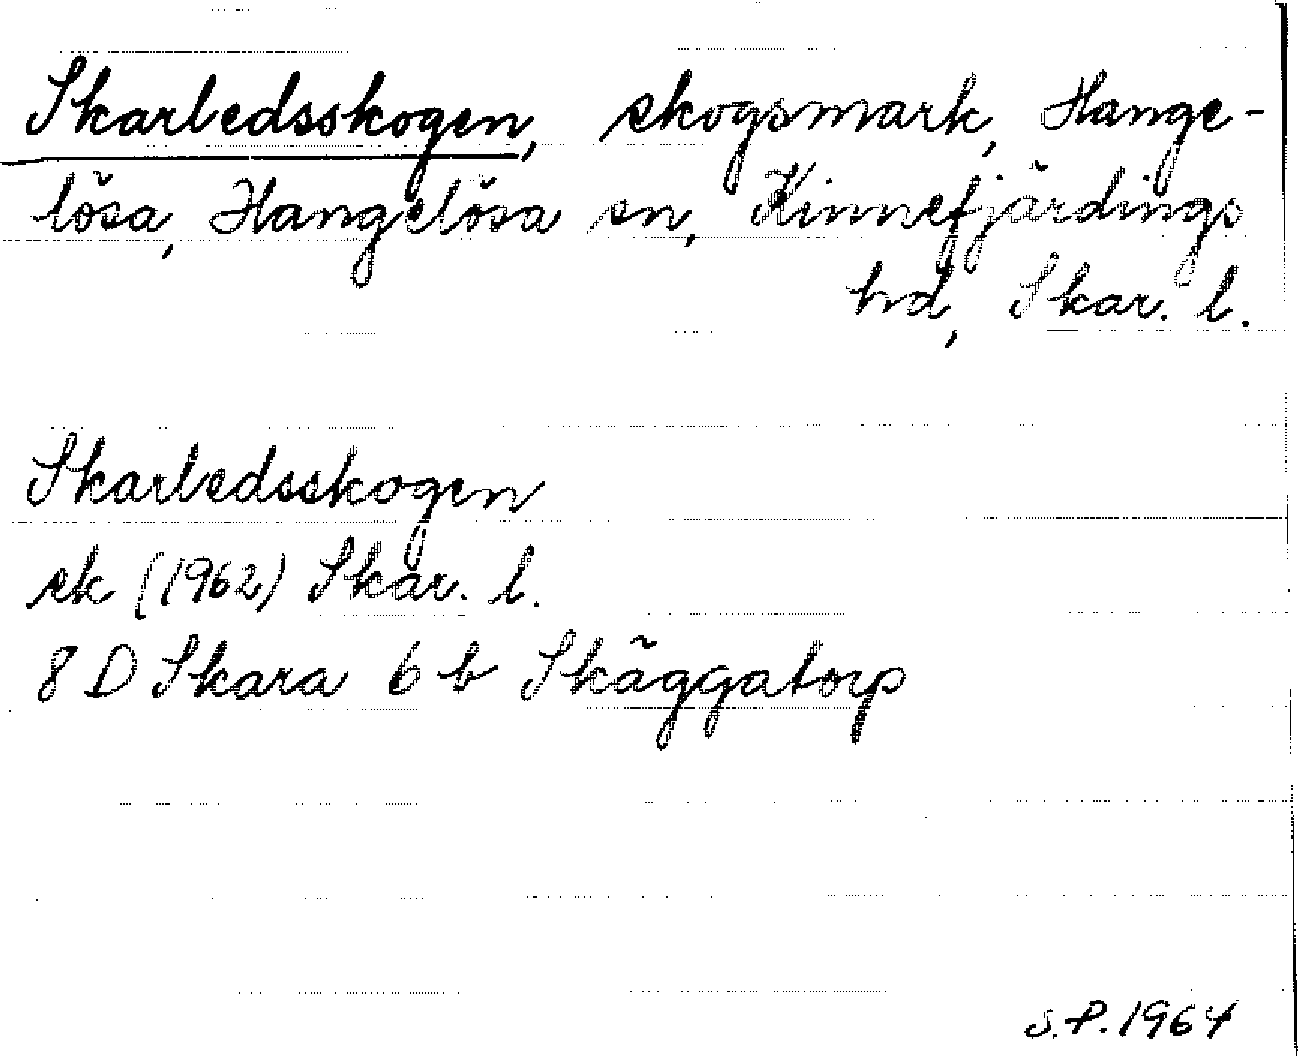 Skarbedsskogen, skogsmark, Hange-
lösa, Hangelösa sn, Kinnefjärdings
hd, Skar. l.
Skarbedsskogen
ek (1962) Skar. l.
8 D Skara 6 b Skäggatorp
S.P. 1964